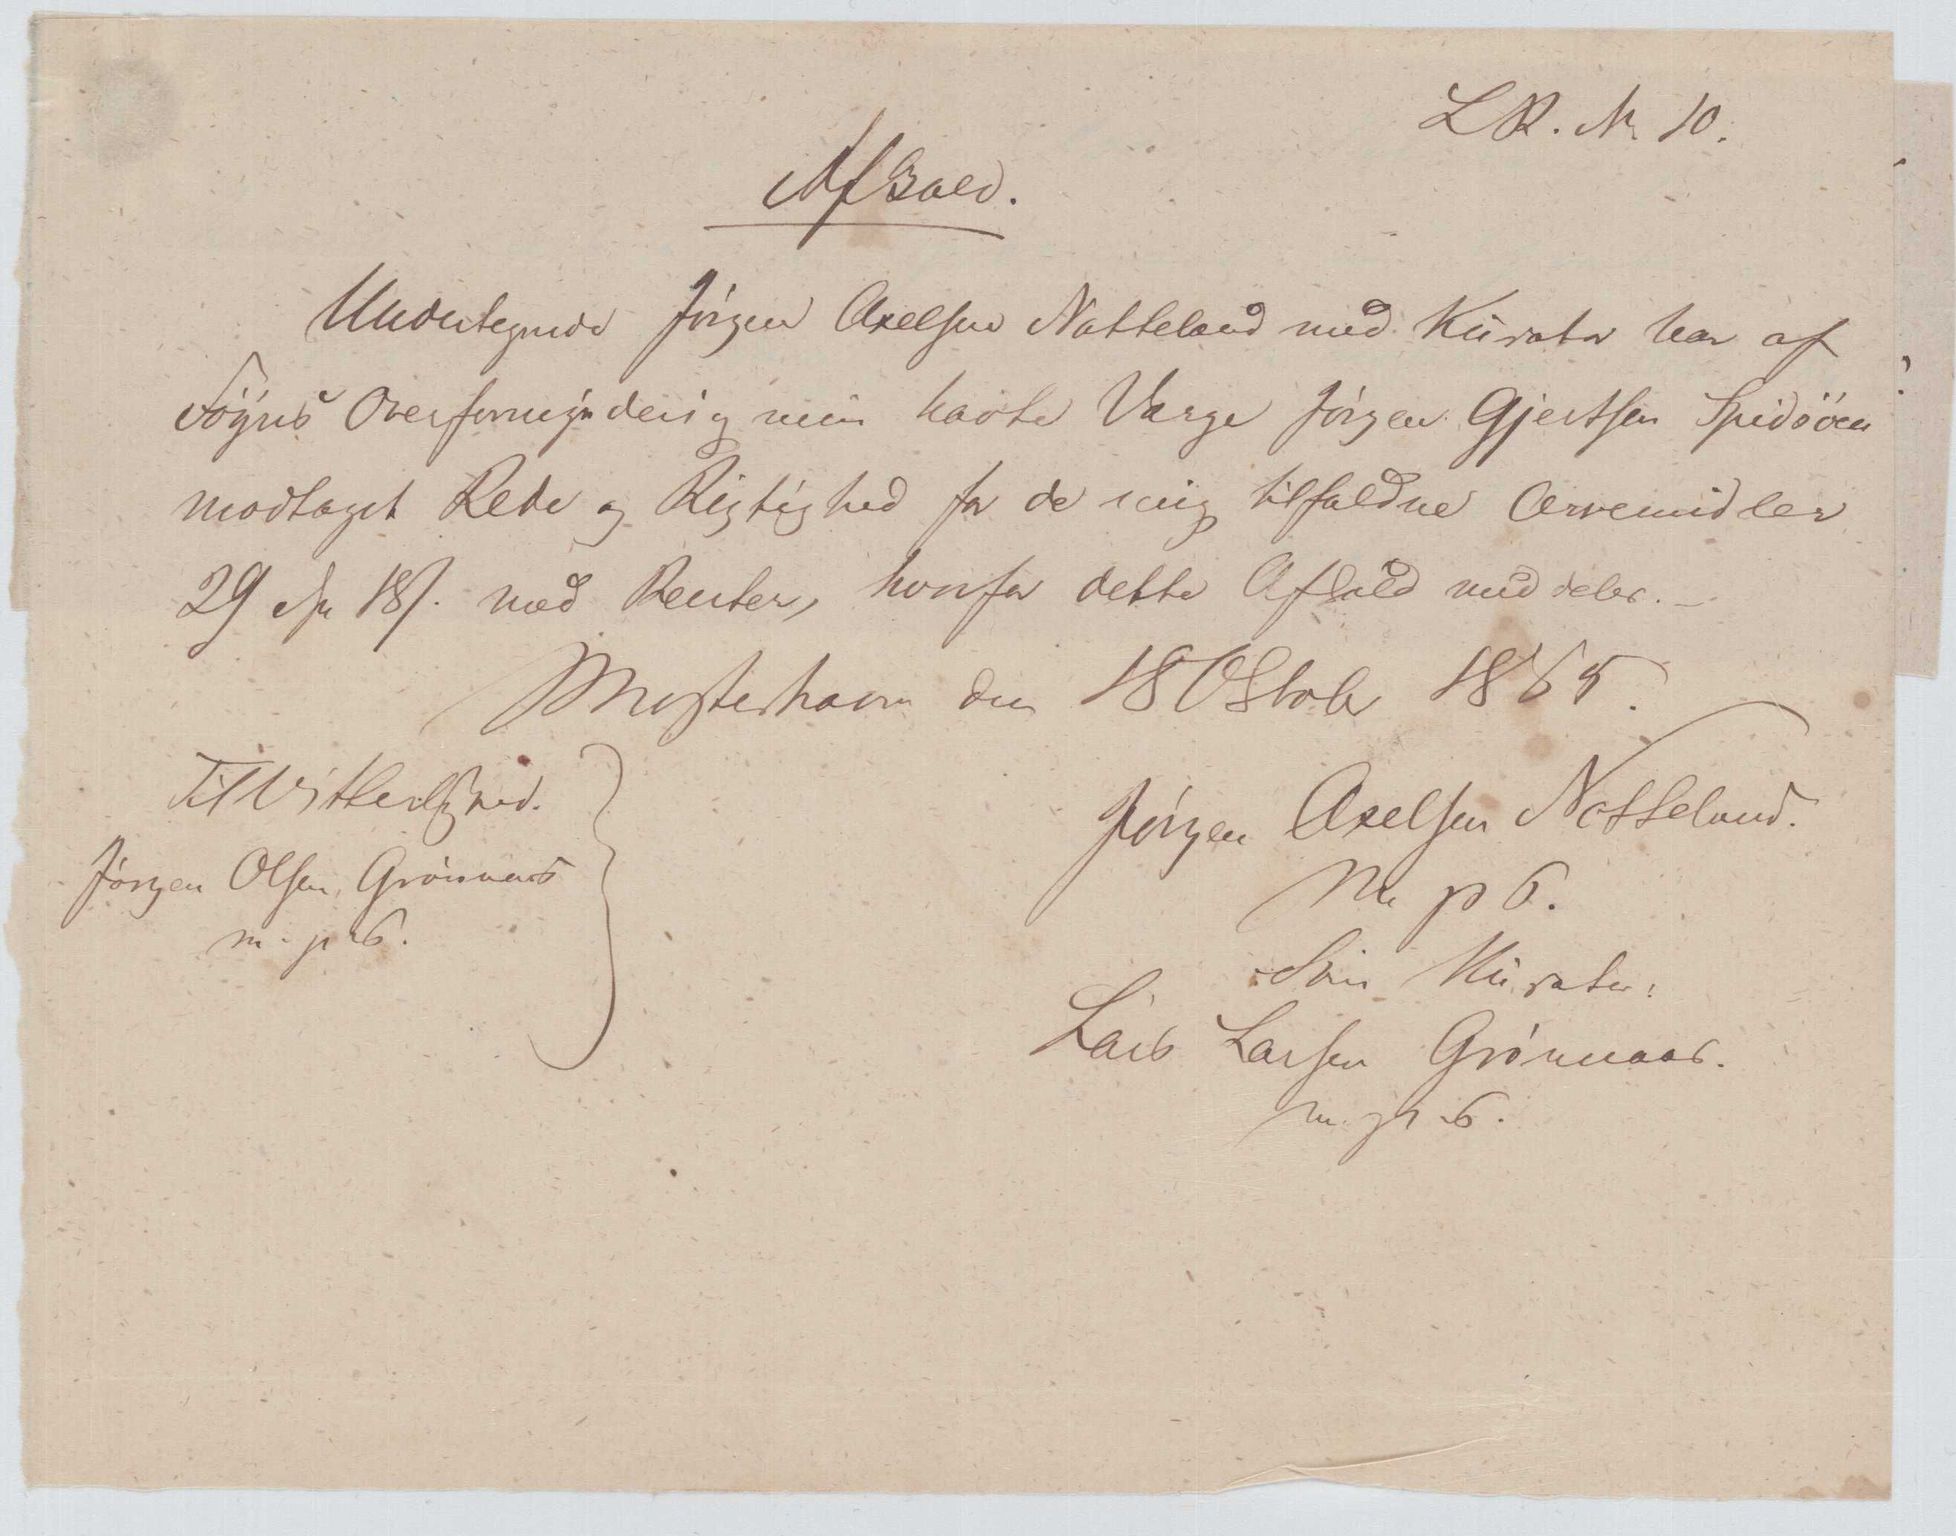 L R. No 10.
Afkald.
Undertegnede Jörgen Axelsen Natteland med Kurator har af
Föÿns Overformÿnderi og min havte Værge Jörgen Gjertsen Spidsöen
modtaget Rede og Rigtighed for de mig tilfaldne Arvemidler
29 Spd 18 s. med Renter, hvorfor dette Afkald meddeles. —
Mosterhavn den 18 Oktober 1865.
Til Vitterlighed.
Jörgen Olsen Grönnaas
m. p. P.
Jörgen Axelsen Natteland.
m p P.
Som Kurator:
Lars Larsen Grönnaas.
m. p. P.